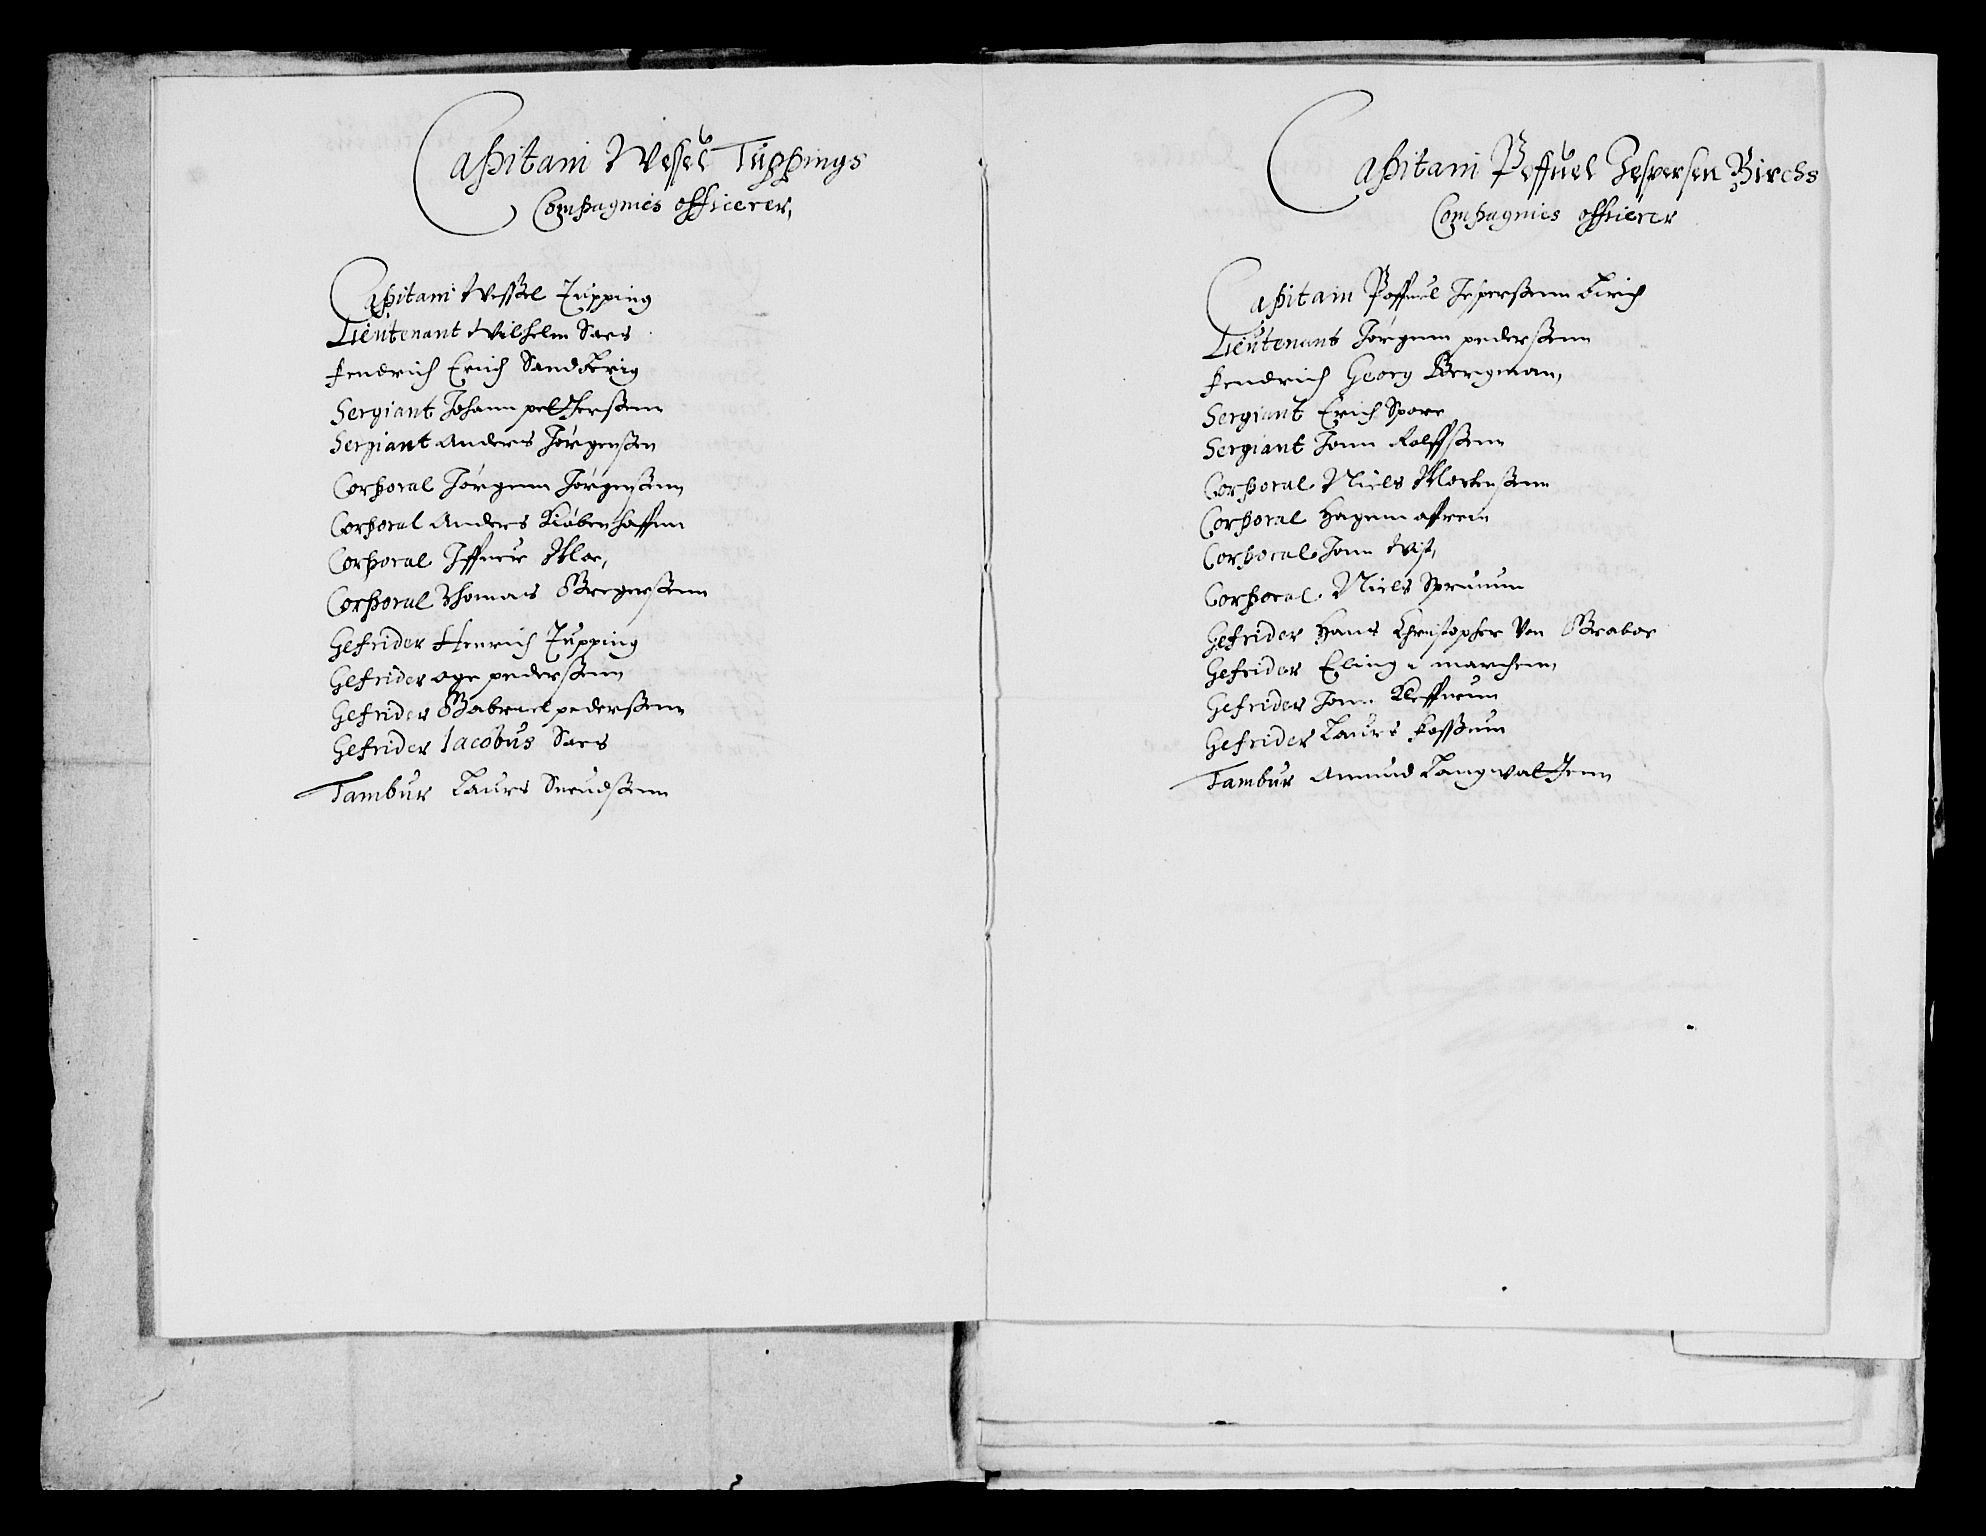 Capitani Wessel Tuppings
Compagnies officerer,
Capitani Wessel Tupping
Lieutenant Wilhelm Saes
Fendrich Erich Sandberig
Sergiant Johann pettersenn
Sergiant Anders Jörgensen
Corporal Jörgenn Jörgensenn
Corporal Anders Kiöbenhaffnn
Corporal Iffuer
Corporal Thomas Gregersenn
Gefrider Henrich Tupping
Gefrider oge pedersenn
Gefrider Gabriel pedersenn
Gefrider Jacobus Saes
Tambur Laurs Suendsenn
Capitani Poffuel Jespersen Birchs
Compagnies officerer
Capitain Poffuel Jespersenn Birch
Lieutenant Jörgenn pedersenn
Fendrich Georg Bergman,
Sergiant Erich Spore
Sergiant Jonn Rolffsenn
Corporal Niels
Corporal Hagenn
Corporal Jonn Wist,
Corporal Niels Spruum
Gefrider Hans Christopher Von Grabow
Gefrider Eling
Gefrider Jonn
Gefrider Laurs
Tambur Amund Langwaldtenn